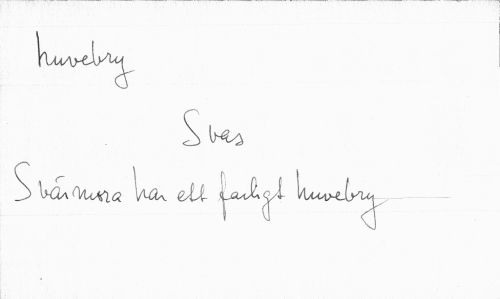 huvebry
Svas
Svärmora har ett farligt huvebry